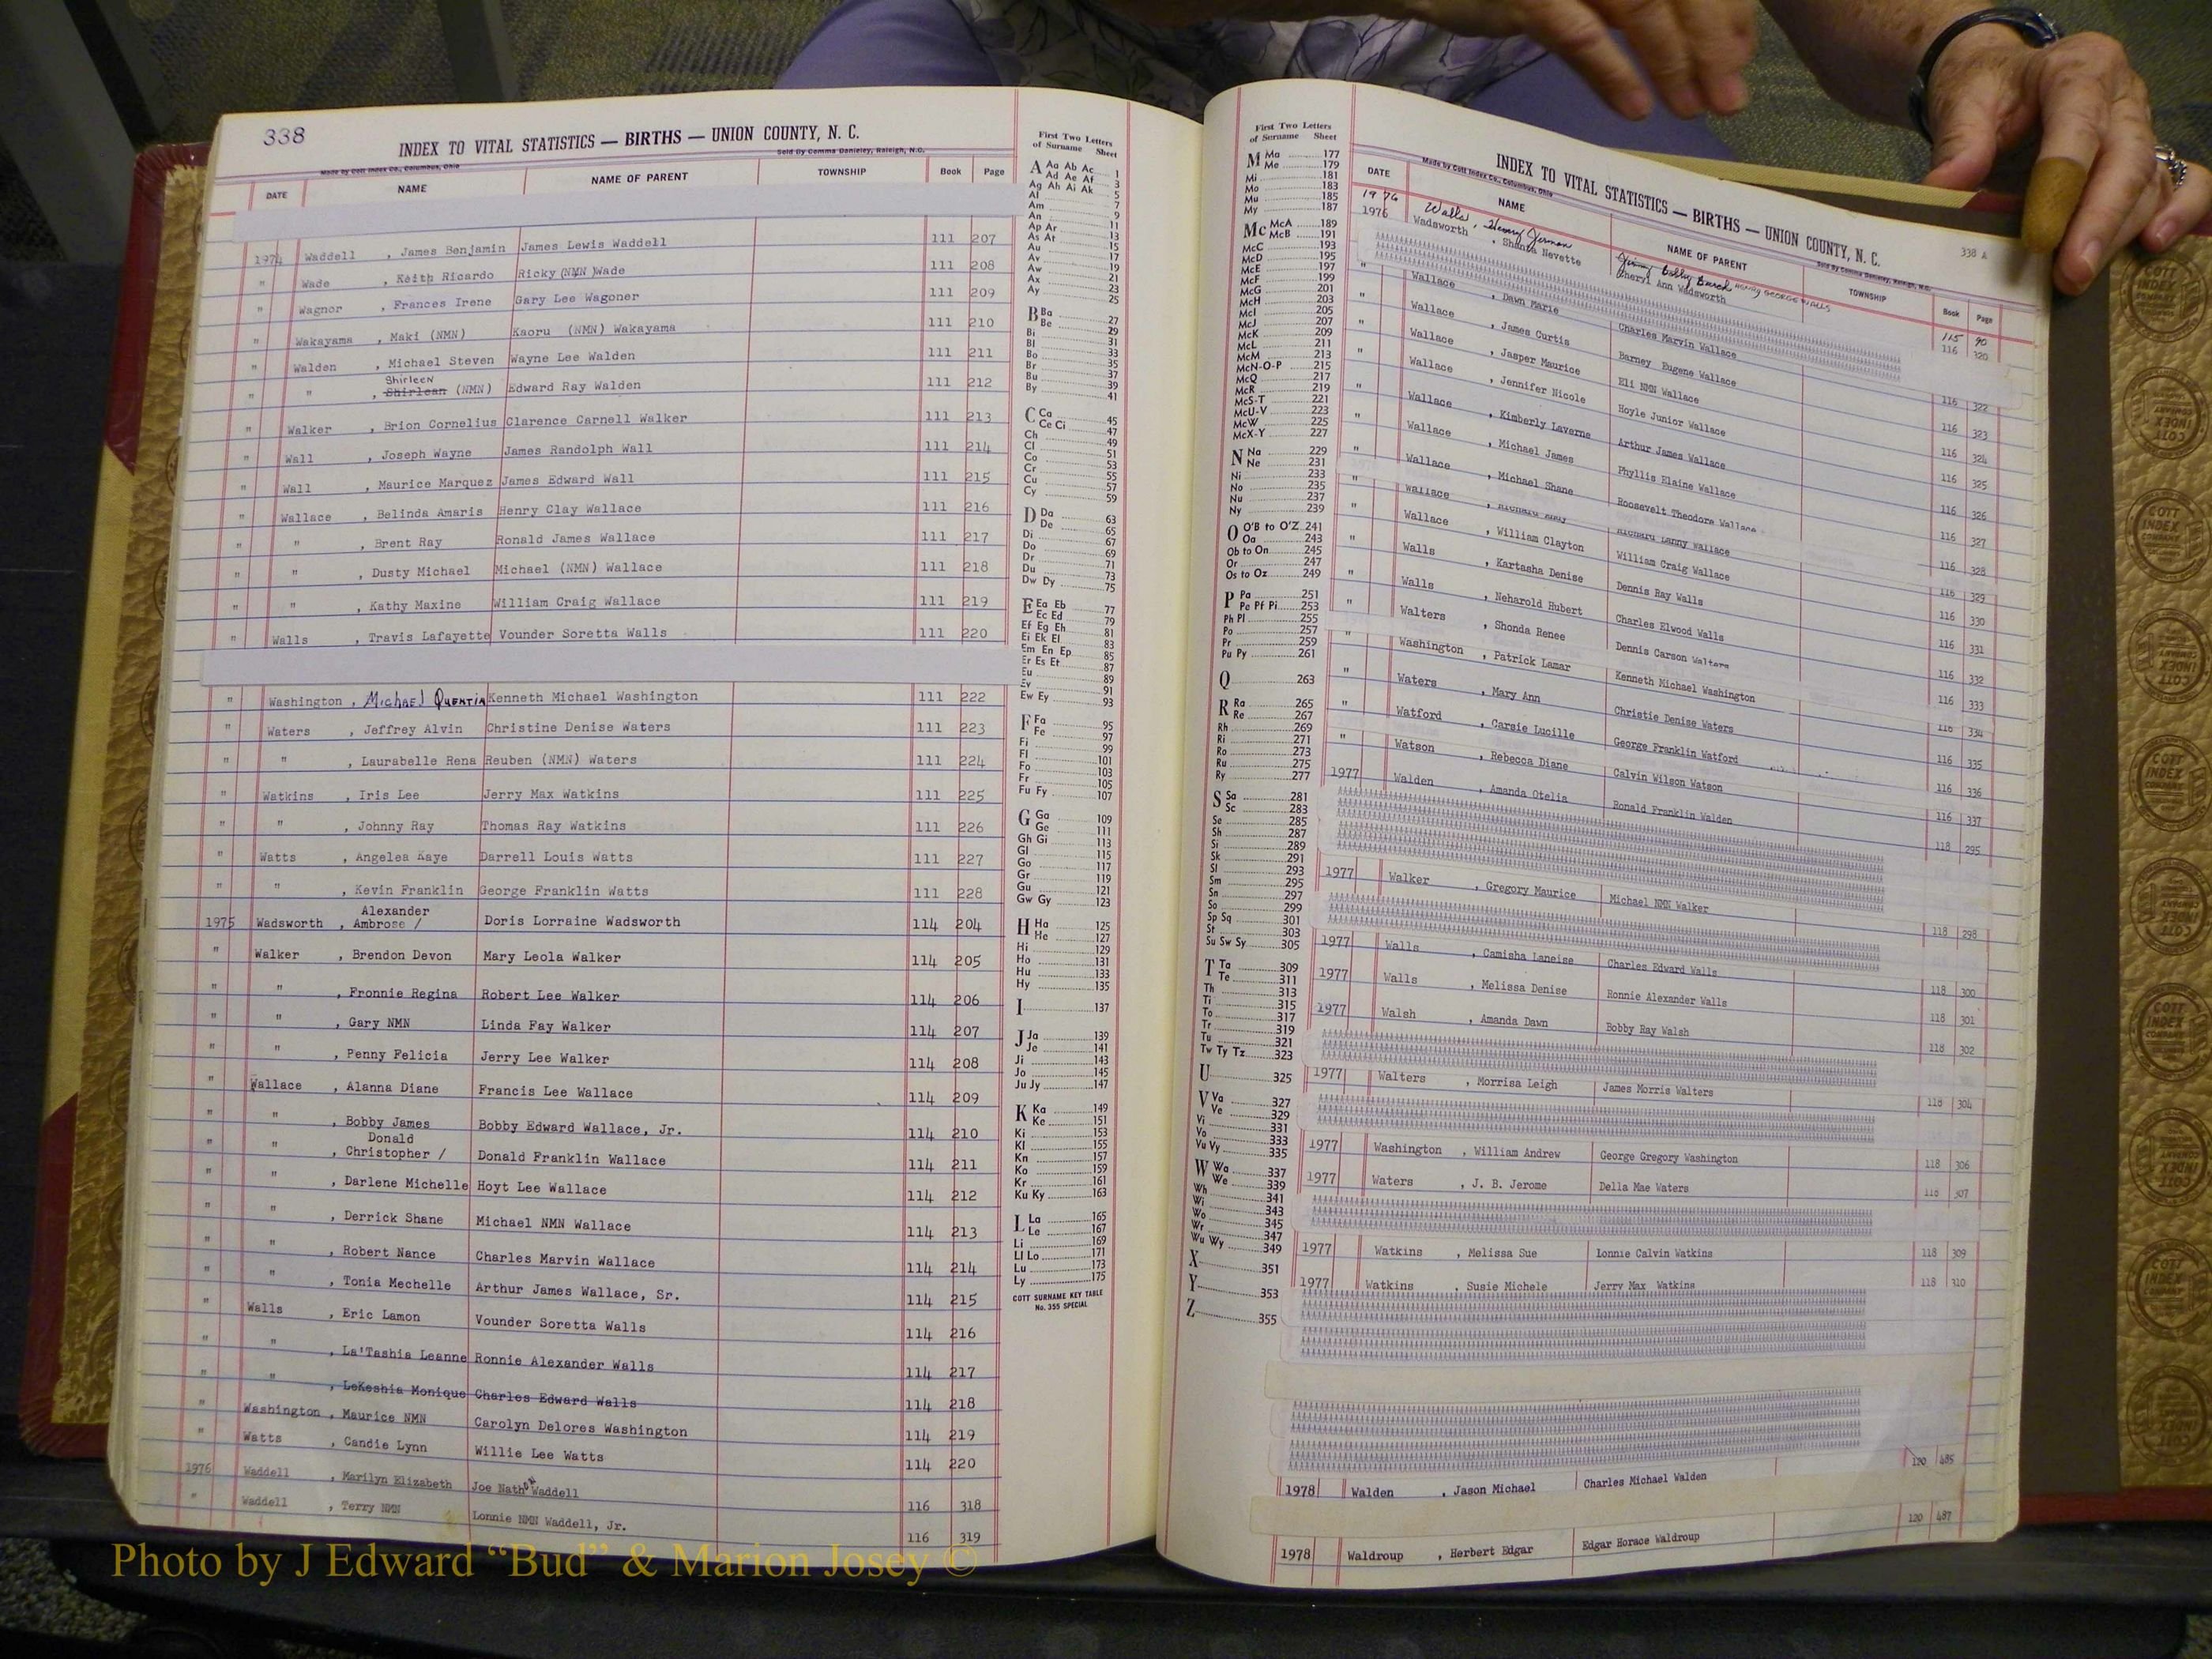 338
INDEX TO VITAL STATISTICS — BIRTHS — UNION COUNTY, N. C.
Made by Cott Index Co., Columbus, Ohio
DATE NAME NAME OF PARENT TOWNSHIP Book Page
1974 Waddell , James Benjamin James Lewis Waddell 111 207
" Wade , Keith Ricardo Ricky (NMN) Wade 111 208
" Wagnor , Frances Irene Gary Lee Wagoner 111 209
" Wakayama , Maki (NMN) Kaoru (NMN) Wakayama 111 210
" Walden , Michael Steven Wayne Lee Walden 111 211
Shirleen
" " , Shirlean (NMN) Edward Ray Walden 111 212
" Walker , Brion Cornelius Clarence Carnell Walker 111 213
" Wall , Joseph Wayne James Randolph Wall 111 214
" Wall , Maurice Marquez James Edward Wall 111 215
" Wallace , Belinda Amaris Henry Clay Wallace 111 216
" " , Brent Ray Ronald James Wallace 111 217
" " , Dusty Michael Michael (NMN) Wallace 111 218
" " , Kathy Maxine William Craig Wallace 111 219
" Walls , Travis Lafayette Vounder Soretta Walls 111 220
" Washington , Michael Quentin Kenneth Michael Washington 111 222
" Waters , Jeffrey Alvin Christine Denise Waters 111 223
" " , Laurabelle Rena Reuben (NMN) Waters 111 224
" Watkins , Iris Lee Jerry Max Watkins 111 225
" " , Johnny Ray Thomas Ray Watkins 111 226
" Watts , Angelea Kaye Darrell Louis Watts 111 227
" " , Kevin Franklin George Franklin Watts 111 228
Alexander
1975 Wadsworth , Ambrose / Doris Lorraine Wadsworth 114 204
" Walker , Brendon Devon Mary Leola Walker 114 205
" " , Fronnie Regina Robert Lee Walker 114 206
" " , Gary NMN Linda Fay Walker 114 207
" " , Penny Felicia Jerry Lee Walker 114 208
" Wallace , Alanna Diane Francis Lee Wallace 114 209
" " , Bobby James Bobby Edward Wallace, Jr. 114 210
Donald
" " , Christopher / Donald Franklin Wallace 114 211
" " , Darlene Michelle Hoyt Lee Wallace 114 212
" " , Derrick Shane Michael NMN Wallace 114 213
" " , Robert Nance Charles Marvin Wallace 114 214
" " , Tonia Mechelle Arthur James Wallace, Sr. 114 215
" Walls , Eric Lamon Vounder Soretta Walls 114 216
" " , La'Tashia Leanne Ronnie Alexander Walls 114 217
" " , LeKeshia Monique Charles Edward Walls 114 218
" Washington , Maurice NMN Carolyn Delores Washington 114 219
" Watts , Candie Lynn Willie Lee Watts 114 220
1976 Waddell , Marilyn Elizabeth Joe Nath Waddell 116 318
" Waddell , Terry NMN Lonnie NMN Waddell, Jr. 116 319
First Two Letters
of Surname Sheet
A Aa Ab Ac 1
Ad Ae Af 3
Ag Ah Ai Ak 5
Al 7
Am 9
An 11
Ap Ar 13
As At 15
Au 17
Av 19
Aw 21
Ax 23
Ay 25
B Ba 27
Be 29
Bi 31
Bl 33
Bo 35
Br 37
Bu 39
By 41
C Ca 45
Ce Ci 47
Ch 49
Cl 51
Co 53
Cr 55
Cu 57
Cy 59
D Da 63
De 65
Di 67
Do 69
Dr 71
Du 73
Dw Dy 75
E Ea Eb 77
Ec Ed 79
Ef Eg Eh 81
Ei Ek El 83
Em En Ep 85
Er Es Et 87
Eu 89
Ev 91
Ew Ey 93
F Fa 95
Fe 97
Fi 99
Fl 101
Fo 103
Fr 105
Fu Fy 107
G Ga 109
Ge 111
Gh Gi 113
Gl 115
Go 117
Gr 119
Gu 121
Gw Gy 123
H Ha 125
He 127
Hi 129
Ho 131
Hu 133
Hy 135
I 137
J Ja 139
Je 141
Ji 143
Jo 145
Ju Jy 147
K Ka 149
Ke 151
Ki 153
Kl 155
Kn 157
Ko 159
Kr 161
Ku Ky 163
L La 165
Le 167
Li 169
Ll Lo 171
Lu 173
Ly 175
COTT SURNAME KEY TABLE
No. 355 SPECIAL
First Two Letters
of Surname Sheet
M Ma 177
Me 179
Mi 181
Mo 183
Mu 185
My 187
Mc McA 189
McB 191
McC 193
McD 195
McE 197
McF 199
McG 201
McH 203
McI 205
McJ 207
McK 209
McL 211
McM 213
McN-O-P 215
McQ 217
McR 219
McS-T 221
McU-V 223
McW 225
McX-Y 227
N Na 229
Ne 231
Ni 233
No 235
Nu 237
Ny 239
O O'B to O'Z 241
Oa 243
Ob to On 245
Or 247
Os to Oz 249
P Pa 251
Pe Pf Pi 253
Ph Pl 255
Po 257
Pr 259
Pu Py 261
Q 263
R Ra 265
Re 267
Rh 269
Ri 271
Ro 273
Ru 275
Ry 277
S Sa 281
Sc 283
Se 285
Sh 287
Si 289
Sk 291
Sl 293
Sm 295
Sn 297
So 299
Sp Sq 301
St 303
Su Sw Sy 305
T Ta 309
Te 311
Th 313
Ti 315
To 317
Tr 319
Tu 321
Tw Ty Tz 323
U 325
V Va 327
Ve 329
Vi 331
Vo 333
Vu Vy 335
W Wa 337
We 339
Wh 341
Wi 343
Wo 345
Wr 347
Wu Wy 349
X 351
Y 353
Z 355
338 A
INDEX TO VITAL STATISTICS — BIRTHS — UNION COUNTY, N. C.
Made by Cott Index Co., Columbus, Ohio
DATE NAME NAME OF PARENT TOWNSHIP Book Page
1976 Walls, Henry HENRY GEORGE WALLS 115 90
1976 Wadsworth , Shanta Nevette Cheryl Ann Wadsworth 116 320
" Wallace , Dawn Marie Charles Marvin Wallace 116 322
" Wallace , James Curtis Barney Eugene Wallace 116 323
" Wallace , Jasper Maurice Eli NMN Wallace 116 324
" Wallace , Jennifer Nicole Hoyle Junior Wallace 116 325
" Wallace , Kimberly Laverne Arthur James Wallace 116 326
" Wallace , Michael James Phyllis Elaine Wallace 116 327
" Wallace , Michael Shane Roosevelt Theodore Wallace 116 328
" Wallace , Richard Lanny Wallace 116 329
" Wallace , William Clayton William Craig Wallace 116 330
" Walls , Kartasha Denise Dennis Ray Walls 116 331
" Walls , Neharold Hubert Charles Elwood Walls 116 332
" Walters , Shonda Renee Dennis Carson Walters 116 333
" Washington , Patrick Lamar Kenneth Michael Washington 116 334
" Waters , Mary Ann Christie Denise Waters 116 335
" Watford , Carsie Lucille George Franklin Watford 116 336
" Watson , Rebecca Diane Calvin Wilson Watson 116 337
1977 Walden , Amanda Otelia Ronald Franklin Walden 118 295
1977 Walker , Gregory Maurice Michael NMN Walker 118 298
1977 Walls , Camisha Laneise Charles Edward Walls 118 300
1977 Walls , Melissa Denise Ronnie Alexander Walls 118 301
1977 Walsh , Amanda Dawn Bobby Ray Walsh 118 302
1977 Walters , Morrisa Leigh James Morris Walters 118 304
1977 Washington , William Andrew George Gregory Washington 118 306
1977 Waters , J. B. Jerome Della Mae Waters 118 307
1977 Watkins , Melissa Sue Lonnie Calvin Watkins 118 309
1977 Watkins , Susie Michele Jerry Max Watkins 118 310
1978 Walden , Jason Michael Charles Michael Walden 120 485
1978 Waldroup , Herbert Edgar Edgar Horace Waldroup 120 487
Photo by J Edward “Bud” & Marion Josey ©